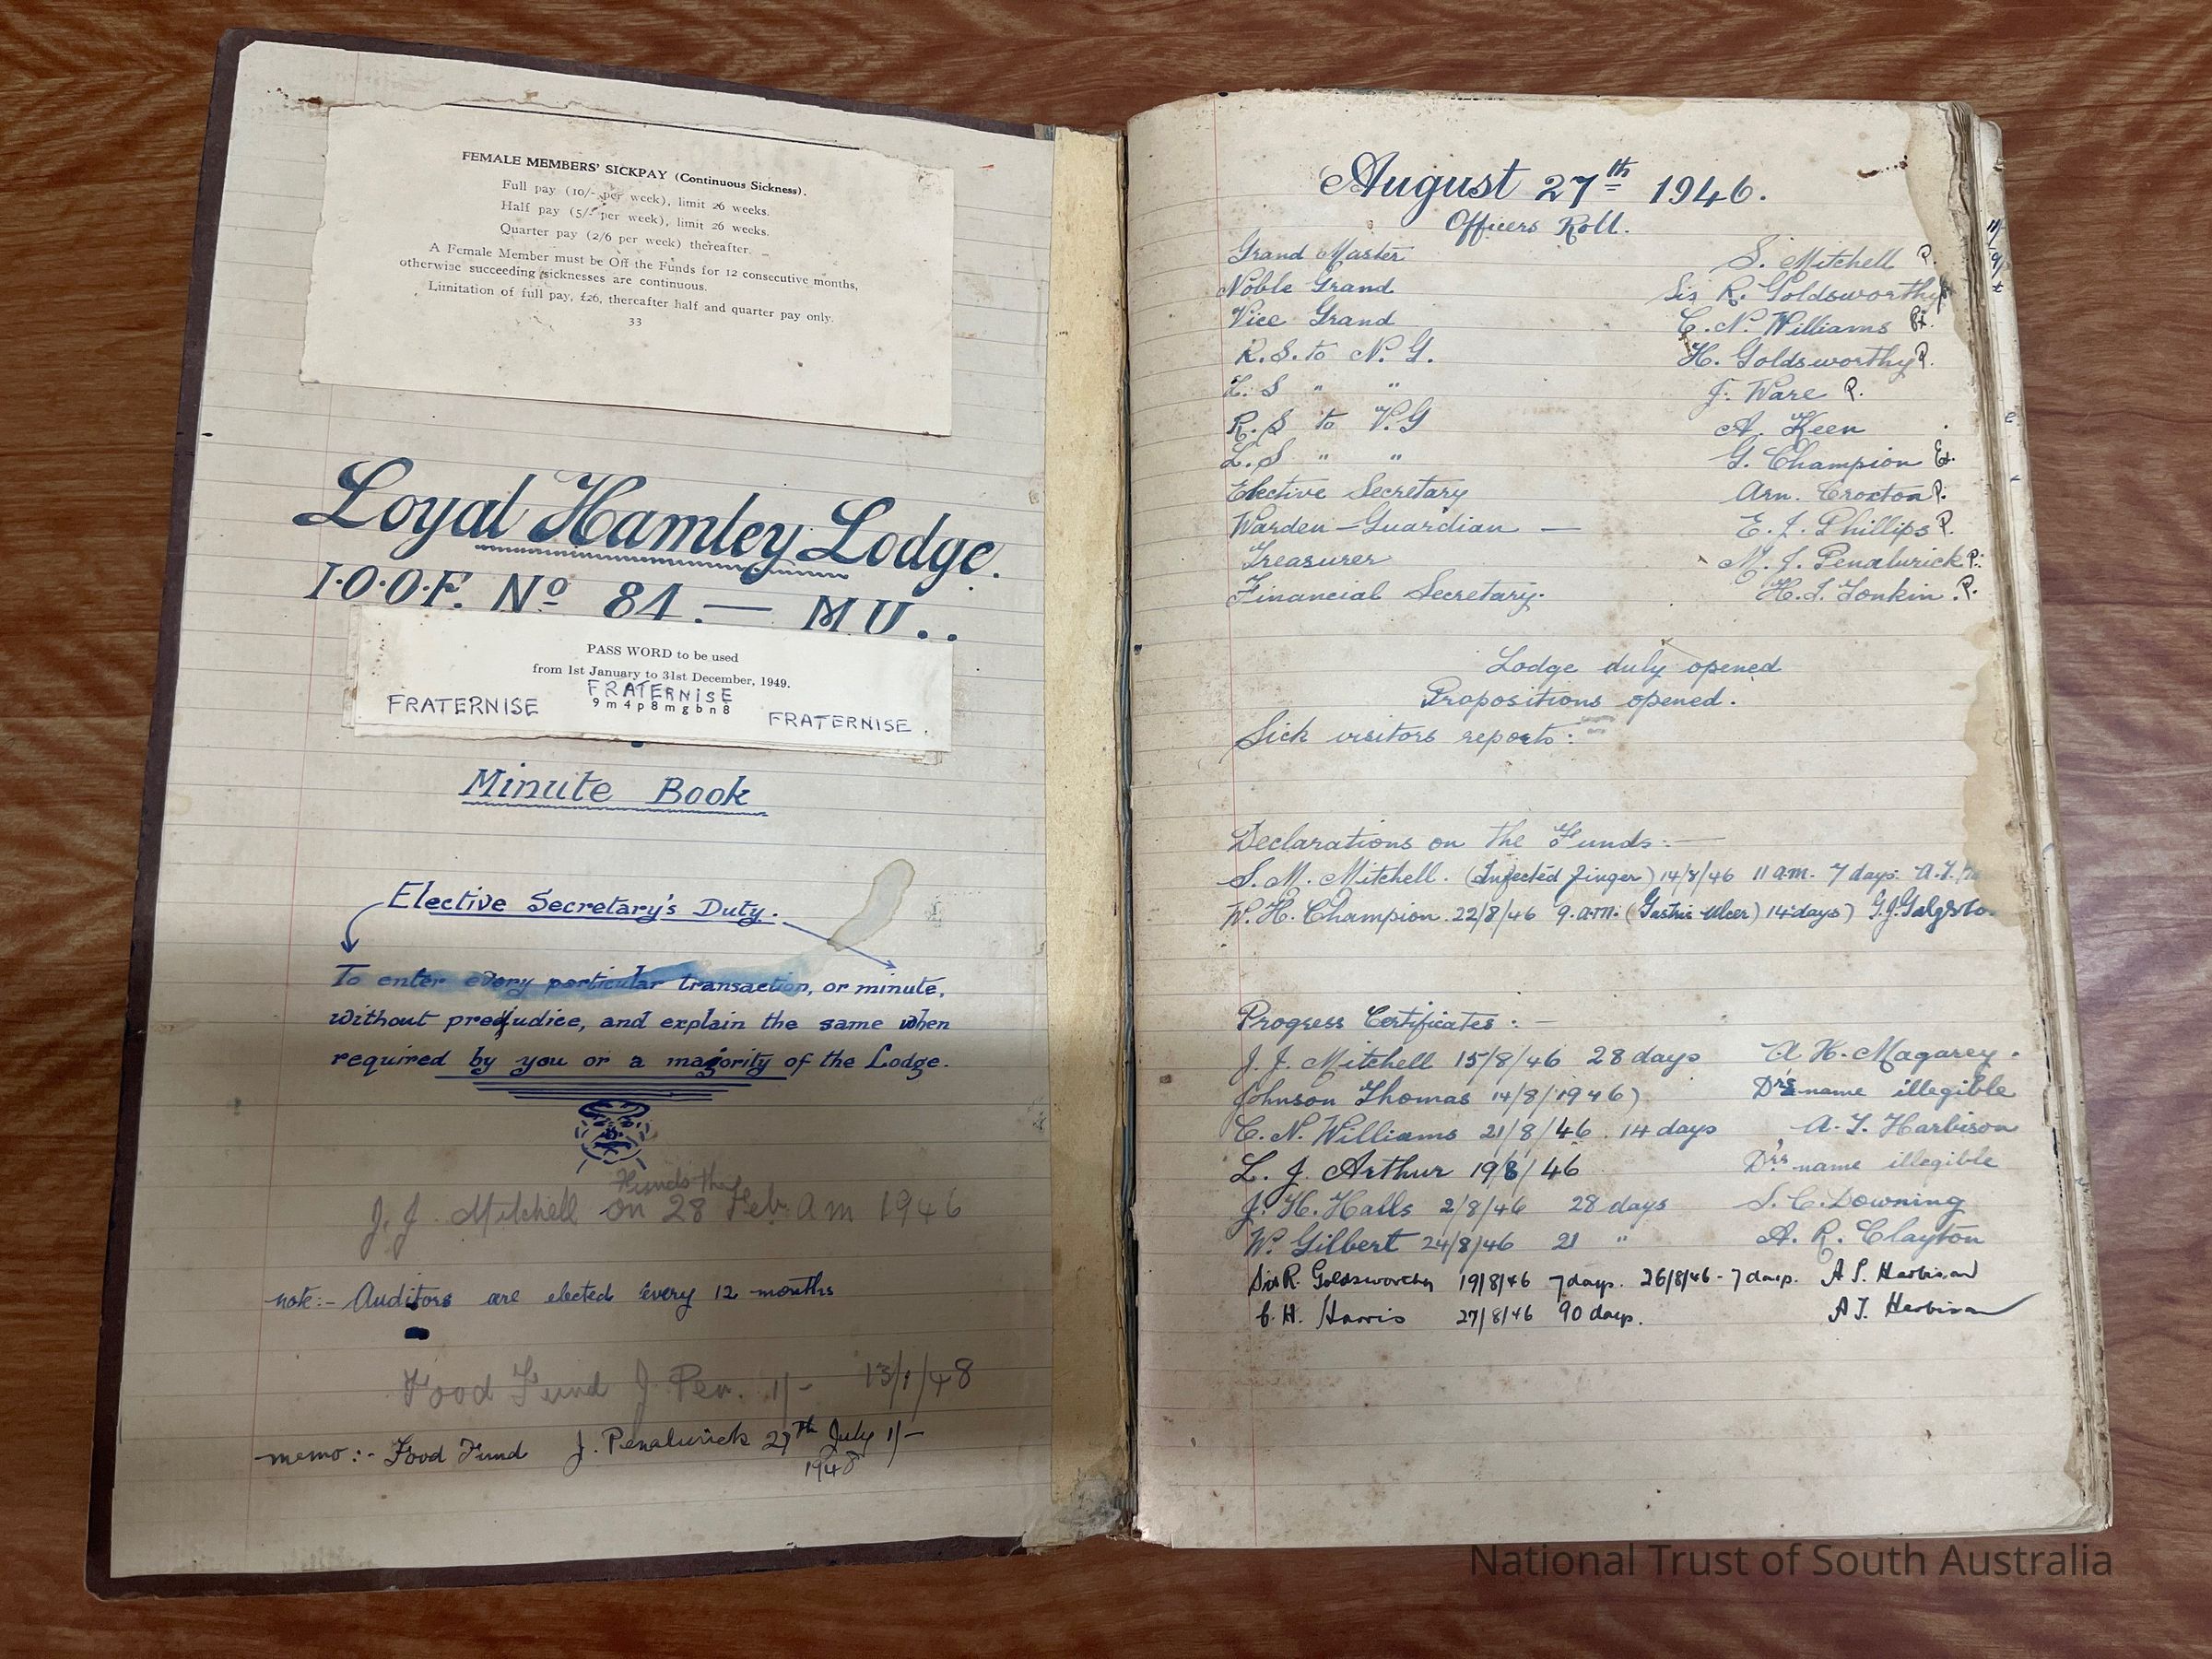 FEMALE MEMBERS' SICKPAY (Continuous Sickness).
Full pay (10/- per week), limit 26 weeks.
Half pay (5/- per week), limit 26 weeks.
Quarter pay (2/6 per week) thereafter.
A Female Member must be Off the Funds for 12 consecutive months,
otherwise succeeding sicknesses are continuous.
Limitation of full pay, £26, thereafter half and quarter pay only.
33
Loyal Hamley Lodge.
I.O.O.F. No 84. — M U . .
PASS WORD to be used
from 1st January to 31st December, 1949.
FRATERNISE
9 m 4 p 8 m g b n 8
FRATERNISE FRATERNISE.
Minute Book
Elective Secretary's Duty.
To enter every particular transaction, or minute,
without prejudice, and explain the same when
required by you or a majority of the Lodge.
Funds the
J. J. Mitchell on 28 Feb. a m 1946
note:- Auditors are elected every 12 months
Food Fund J. Pen. 1/- 13/1/48
memo:- Food Fund J. Penalurick 27th July 1/-
1948
August 27th 1946.
Officers Roll.
Grand Master S. Mitchell P.
Noble Grand Sis R. Goldsworthy
Vice Grand C. N. Williams
R. S. to N. G. H. Goldsworthy P.
L. S " " J. Ware P.
R. S to V. G A. Keen
L. S " " G. Champion Ex.
Elective Secretary Arn. Croxton P.
Warden — Guardian — E. J. Phillips P.
Treasurer M. J. Penalurick P.
Financial Secretary. H. J. Tonkin. P.
Lodge duly opened
Propositions opened.
Sick visitors reports:
Declarations on the Funds:—
S. M. Mitchell. (Infected finger) 14/8/46 11 a.m. 7 days.
W. H. Champion. 22/8/46 9. a.m. (Gastric Ulcer) 14 days)
Progress Certificates: —
J. J. Mitchell 15/8/46 28 days A H. Magarey.
Johnson Thomas 14/8/1946) Drs name illegible
C. N. Williams 21/8/46. 14 days A. T. Harbison
L. J. Arthur 19/8/46 Drs name illegible
J. H. Halls 2/8/46 28 days S. C. Downing
W. Gilbert 24/8/46 21 " A. R. Clayton
Sis R. Goldsworthy 19/8/46 7 days. 26/8/46 - 7 days. A T. Harbison
C. H. Harris 27/8/46 90 days. A T. Harbison
National Trust of South Australia